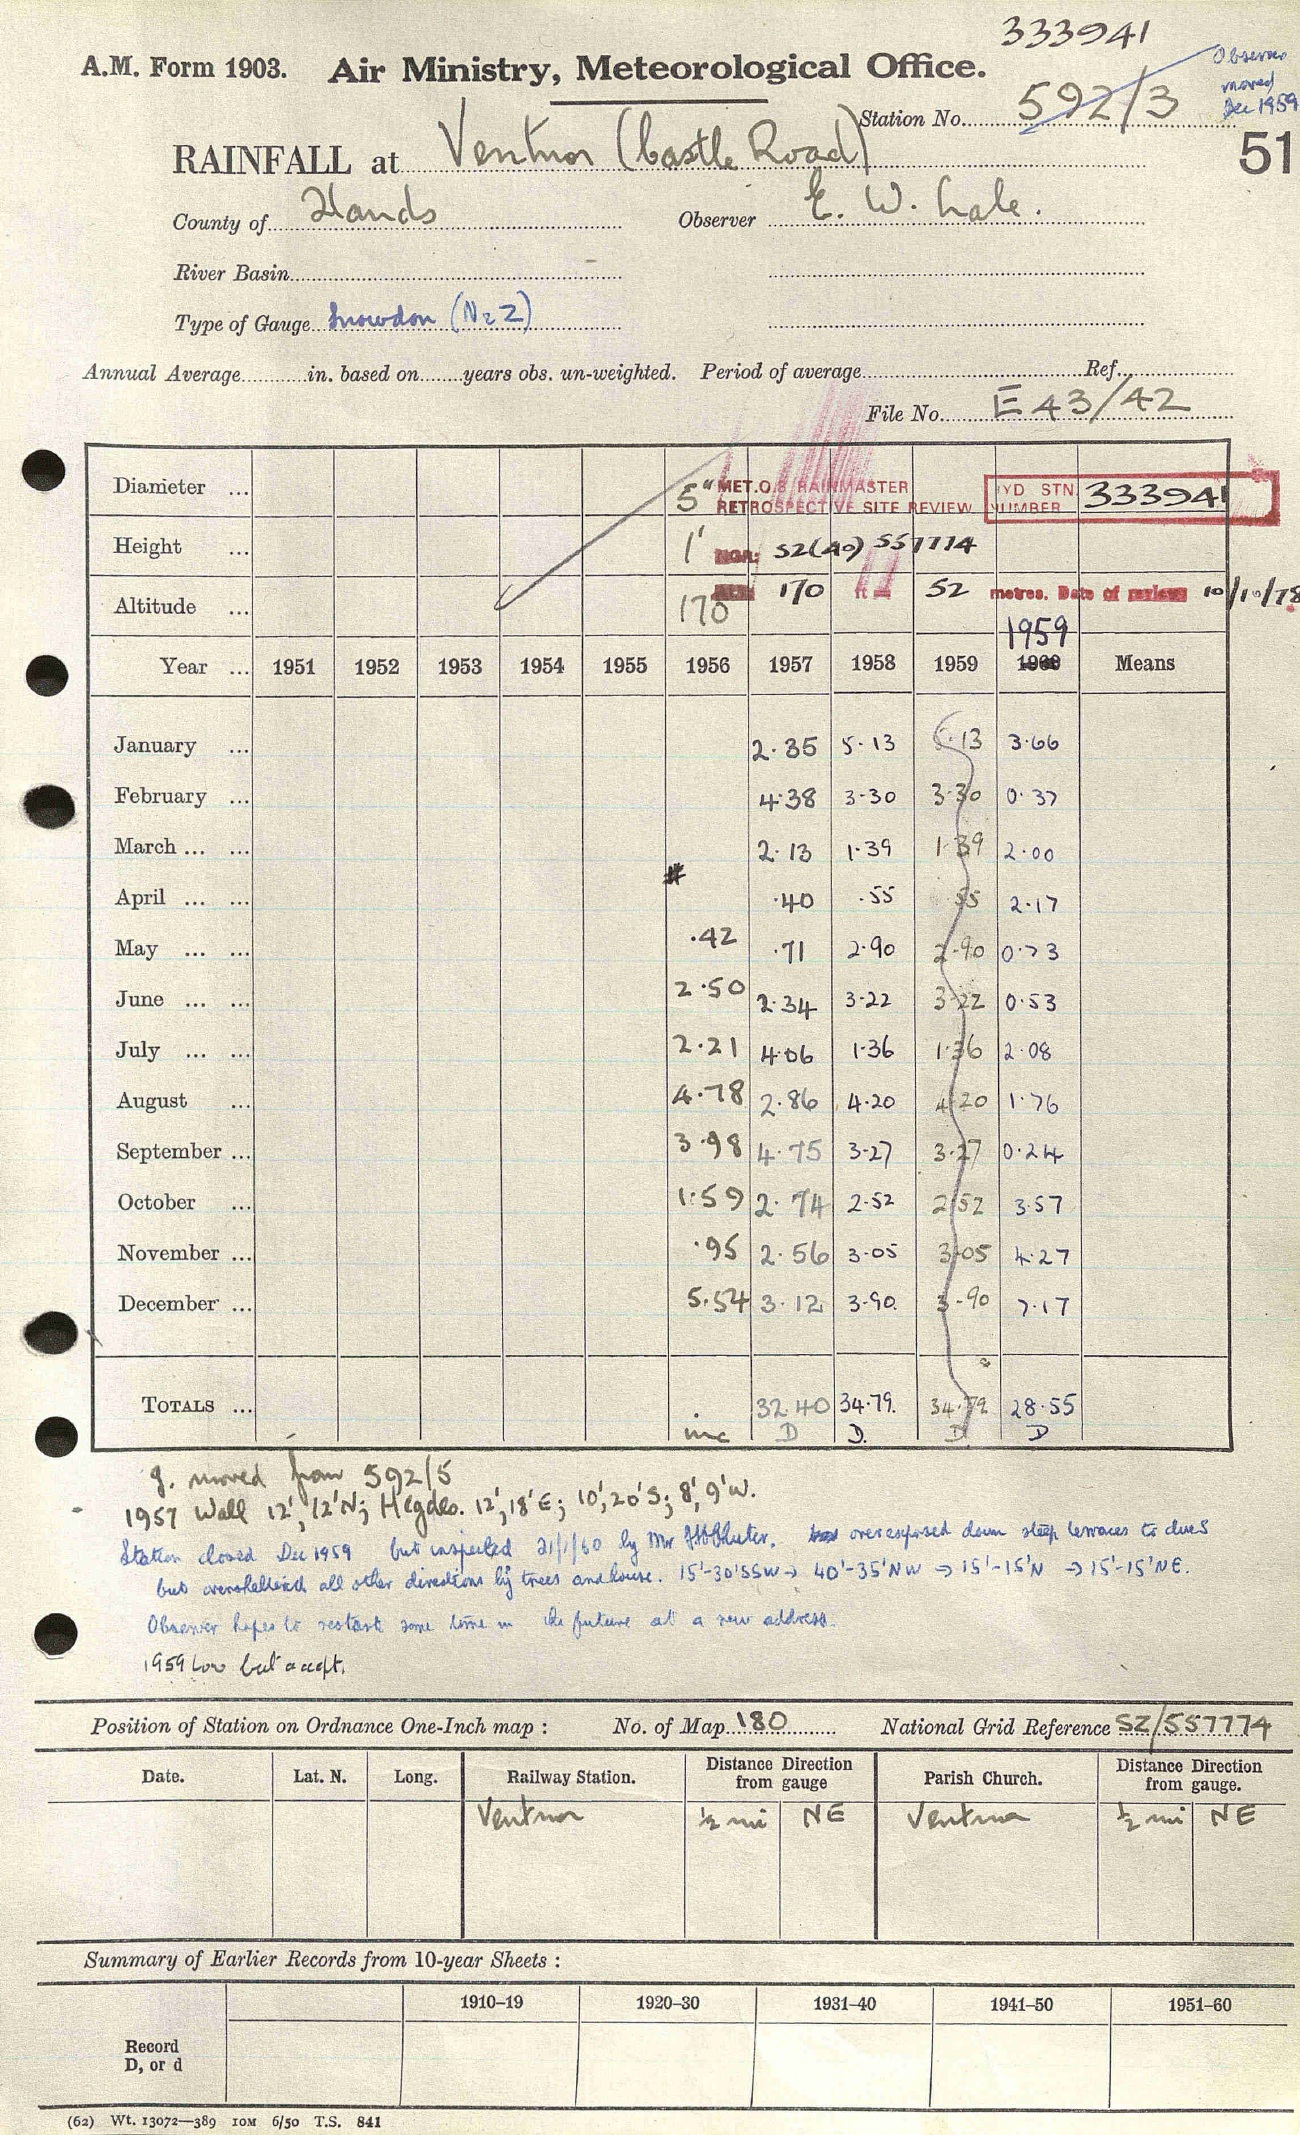 333941
A.M. Form 1903. Air Ministry, Meteorological Office.
Observer moved Dec 1959
Station No. 592/3
51
RAINFALL at Ventnor (Castle Road)
County of Hands Observer E. W. Lale.
River Basin
Type of Gauge Snowdon (No 2)
Annual Average in. based on years obs. un-weighted. Period of average Ref.
File No. E43/42
Diameter ... 5" MET.O.8 RAINMASTER RETROSPECTIVE SITE REVIEW HYD STN. NUMBER 333941
Height ... 1' NGR: SZ(40) 557774
Altitude ... 170 170 ft 52 metres. Date of review 10/10/78
1959
Year ... 1951 1952 1953 1954 1955 1956 1957 1958 1959 1960 Means
January ... 2.35 5.13 5.13 3.66
February ... 4.38 3.30 3.30 0.37
March ... ... 2.13 1.39 1.39 2.00
#
April ... ... .40 .55 .55 2.17
May ... ... .42 .71 2.90 2.90 0.73
June ... ... 2.50 2.34 3.22 3.22 0.53
July ... ... 2.21 4.06 1.36 1.36 2.08
August ... 4.78 2.86 4.20 4.20 1.76
September ... 3.98 4.75 3.27 3.27 0.24
October ... 1.59 2.74 2.52 2.52 3.57
November ... .95 2.56 3.05 3.05 4.27
December ... 5.54 3.12 3.90 3.90 7.17
TOTALS ... inc 32.40 34.79 34.79 28.55
D D. D D
g. moved from 592/5
1957 Wall 12', 12'N; Hegdes. 12', 18'E; 10', 20'S; 8', 9'W.
Station closed Dec 1959 but inspected 21/1/60 by Mr overexposed down steep terraces to
but all other directions by trees and house. 15'-30'SSW → 40'-35'NW → 15'-15'N → 15'-15'NE.
Observer hopes to restart some time in the future at a new address.
1959 Low but accept.
Position of Station on Ordnance One-Inch map : No. of Map 180 National Grid Reference SZ/557774
Date. Lat. N. Long. Railway Station. Distance Direction from gauge Parish Church. Distance Direction from gauge.
Ventnor ½ mi NE Ventnor ½ mi NE
Summary of Earlier Records from 10-year Sheets :
1910–19 1920–30 1931–40 1941–50 1951–60
Record
D, or d
(62) Wt. 13072—389 10M 6/50 T.S. 841